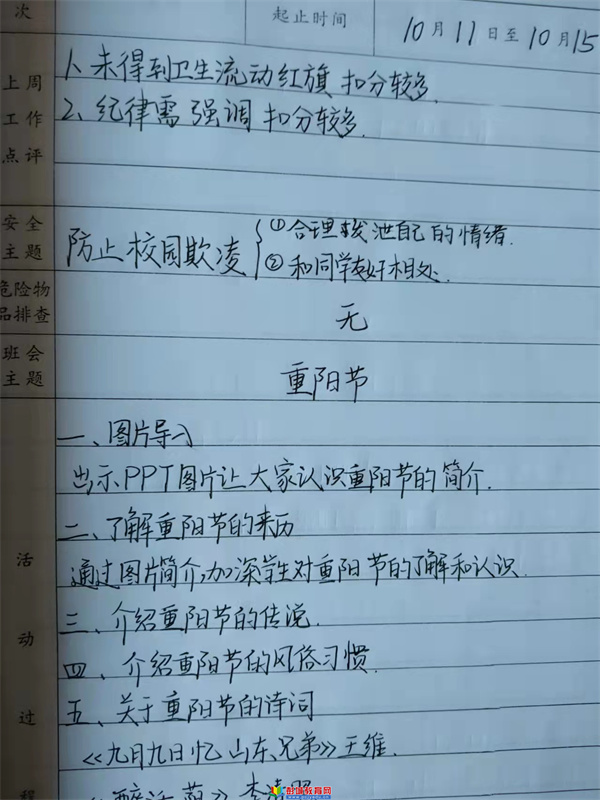 次
起止时间
10月11日至10月15
上周
工作
点评
1、未得到卫生流动红旗 扣分较多.
2、纪律需强调 扣分较多.
安全
主题
防止校园欺凌
①合理 泄自己的情绪.
②和同学友好相处.
危险物
品排查
无
班会
主题
重阳节
一、图片导入
出示PPT图片让大家认识重阳节的简介.
二、了解重阳节的来历
通过图片简介,加深学生对重阳节的了解和认识.
三、介绍重阳节的传说.
四、介绍重阳节的风俗习惯.
五、关于重阳节的诗词
《九月九日忆山东兄弟》王维.
活
动
过
程
教育网